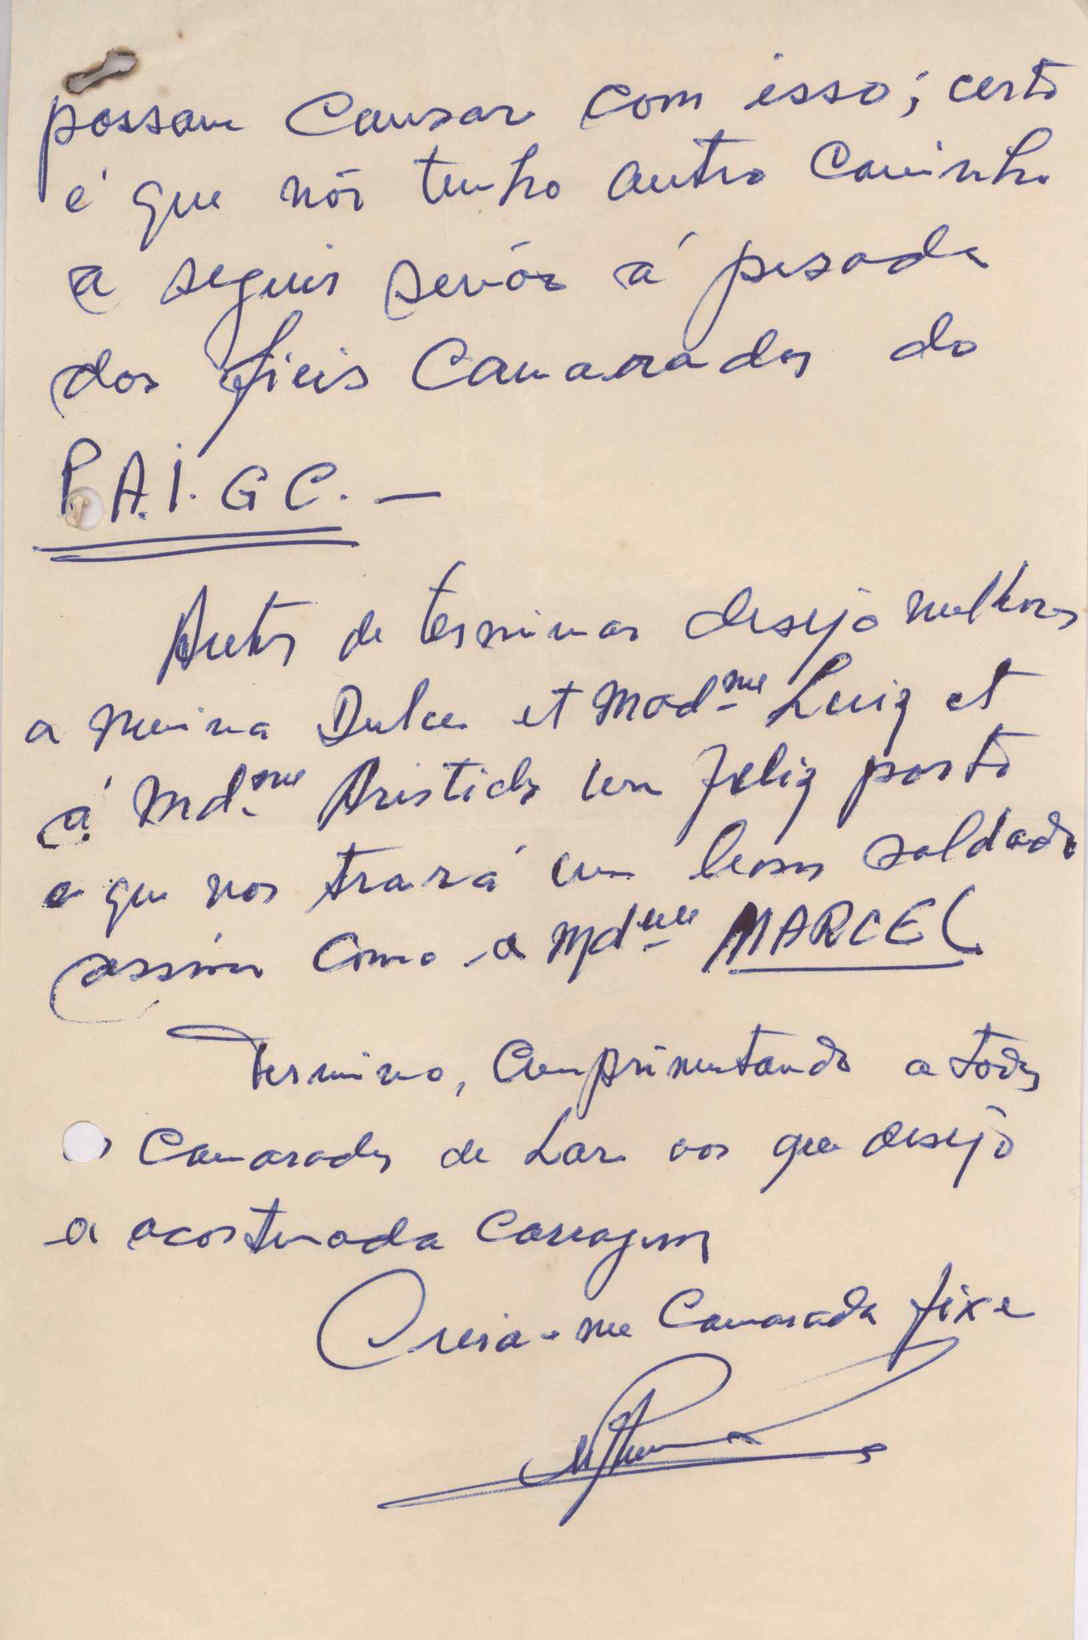 possam causar com isso; certo
é que nós tenho outro caminho
a seguir senão a pesada
dos fieis Camaradas do
P.A.I.GC. —
Antes de terminar desejo melhoras
a menina Dulce et Mad.me Luiz et
á Md.me Aristides um feliz parto
e que nos trará um bom soldado
assim como a Mdme MARCEL
Termino, Cumprimentando a todos
os Camaradas de Lar aos que desejo
a acostumada coragem
Creia-me Camarada fixe